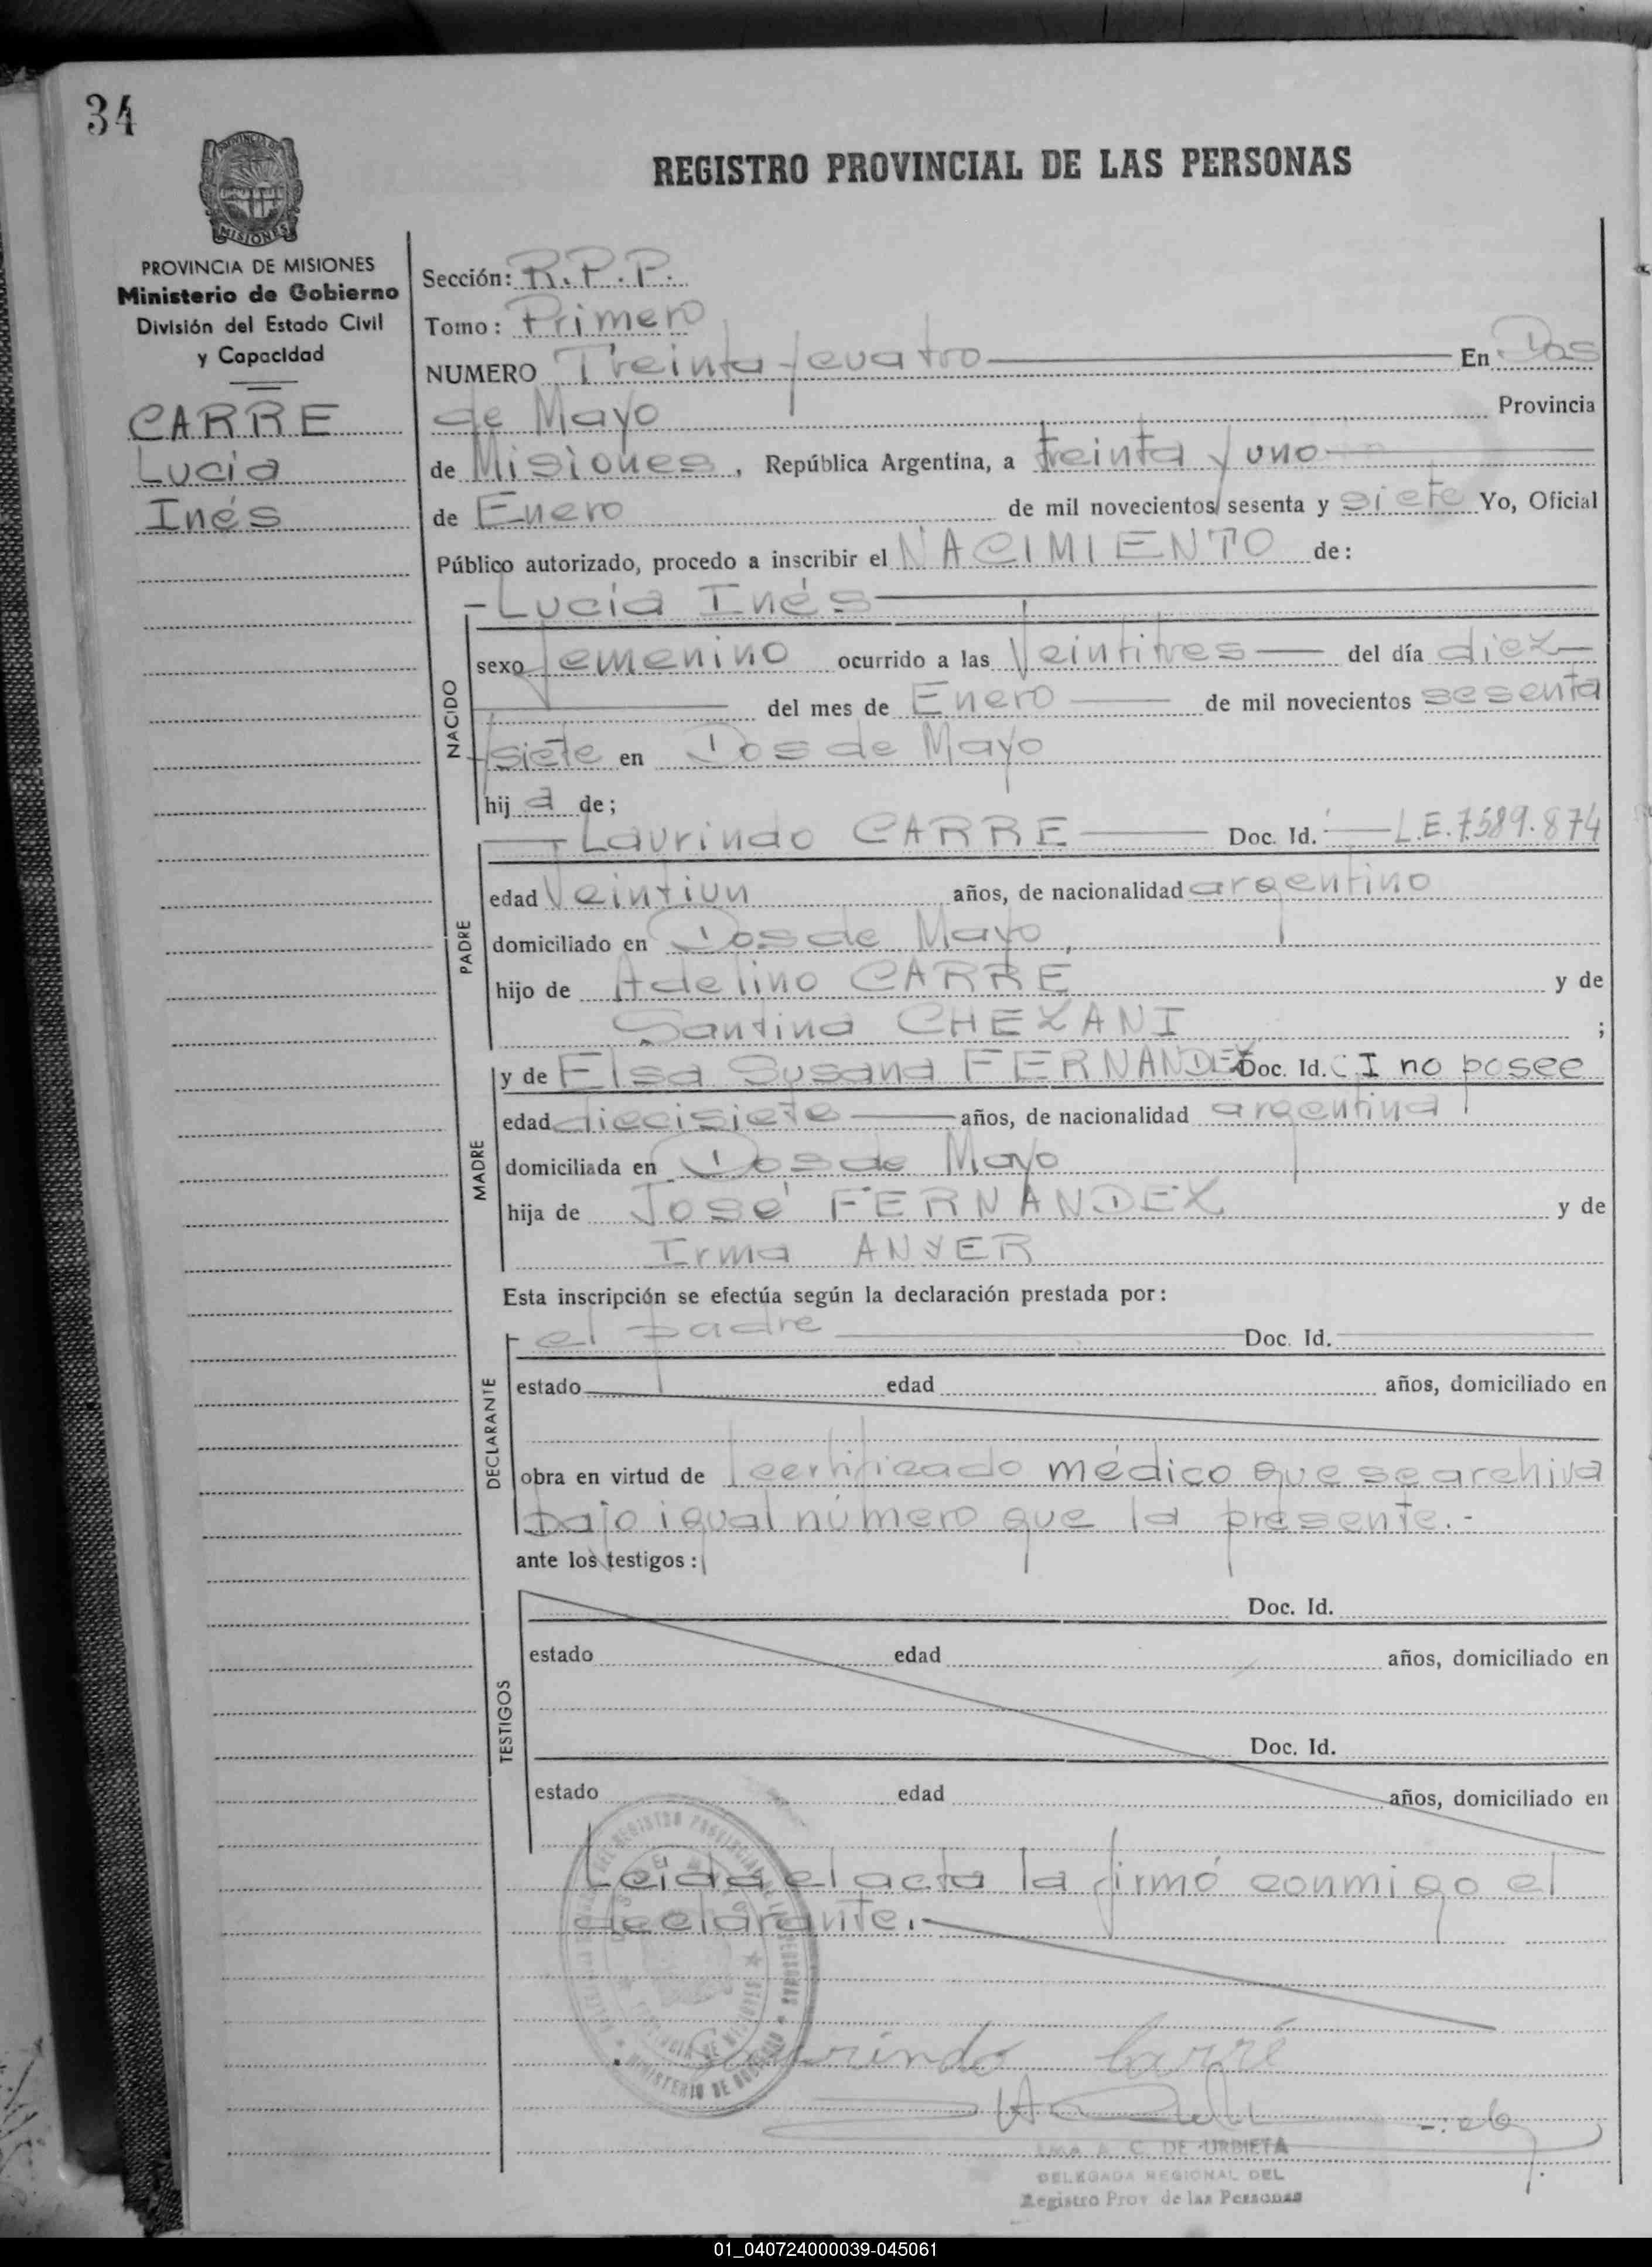 34
PROVINCIA DE MISIONES
Ministerio de Gobierno
División del Estado Civil
y Capacidad
CARRE
Lucía
Inés
REGISTRO PROVINCIAL DE LAS PERSONAS
Sección: R.P.P.
Tomo: Primero
NUMERO Treinta y cuatro En Dos
de Mayo Provincia
de Misiones, República Argentina, a treinta y uno
de Enero de mil novecientos sesenta y siete Yo, Oficial
Público autorizado, procedo a inscribir el NACIMIENTO de:
Lucía Inés
NACIDO
sexo femenino ocurrido a las Veintitres del día diez
del mes de Enero de mil novecientos sesenta
y siete en Dos de Mayo
hij a de;
Laurindo CARRE Doc. Id. L.E.7.589.874
PADRE
edad Veintiun años, de nacionalidad argentino
domiciliado en Dos de Mayo,
hijo de Adelino CARRE y de
Santina CHEZANI ;
y de Elsa Susana FERNANDEZ Doc. Id. CI no posee
MADRE
edad diecisiete años, de nacionalidad argentina
domiciliada en Dos de Mayo
hija de José FERNANDEZ y de
Irma ANYER
Esta inscripción se efectúa según la declaración prestada por:
el padre Doc. Id.
DECLARANTE
estado edad años, domiciliado en
obra en virtud de certificado médico que se archiva
bajo igual número que la presente.-
ante los testigos:
Doc. Id.
TESTIGOS
estado edad años, domiciliado en
Doc. Id.
estado edad años, domiciliado en
Leida el acta la firmó conmigo el
declarante.-
Laurindo Carré
A. C. DE URBIETA
DELEGADA REGIONAL DEL
Registro Prov. de las Personas
01_040724000039-045061